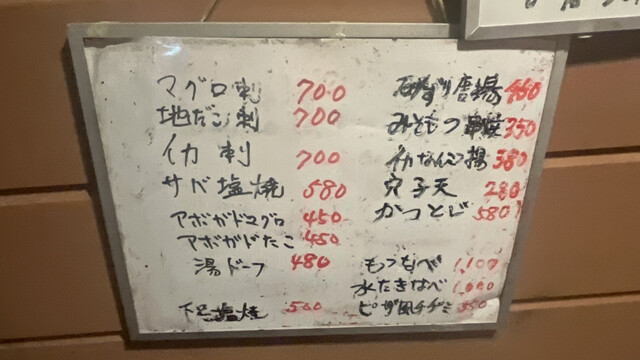 マグロ刺 700
地だこ刺 700
イカ刺 700
サバ塩焼 580
アボガドマグロ 450
アボガドたこ 450
湯ドーフ 480
下足塩焼 500
唐揚 460
みそもつ 350
イカなんこつ揚 380
穴子天 280
かつとじ 580
もつなべ 1,100
水たきなべ 1,000
ピザ風チヂミ 350